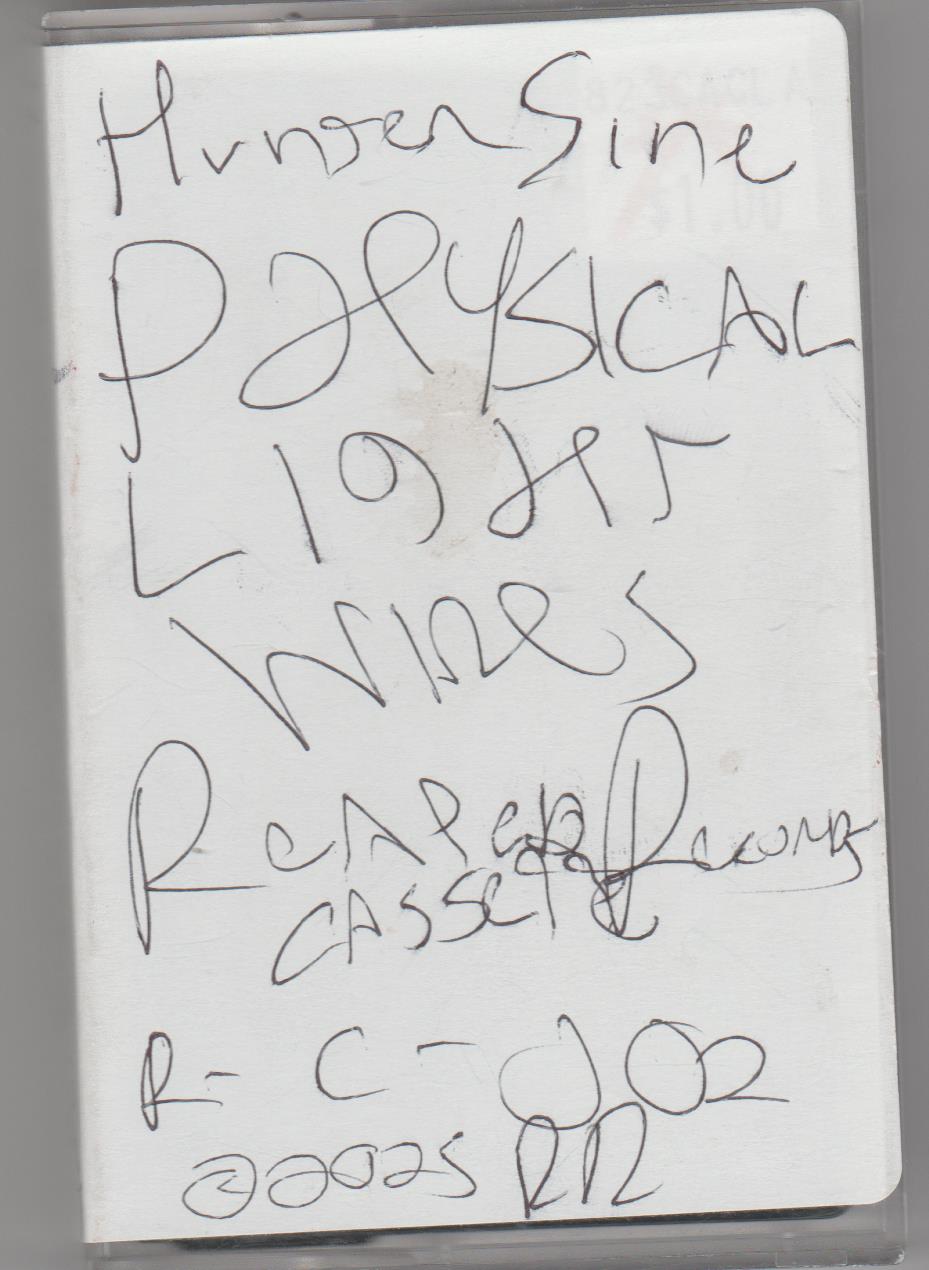 Hunter Sine
PHYSICAL
LIGHT
WIRES
ReAPeR Records
CASSETTE
R-C-002
©2025 RR
$1.00